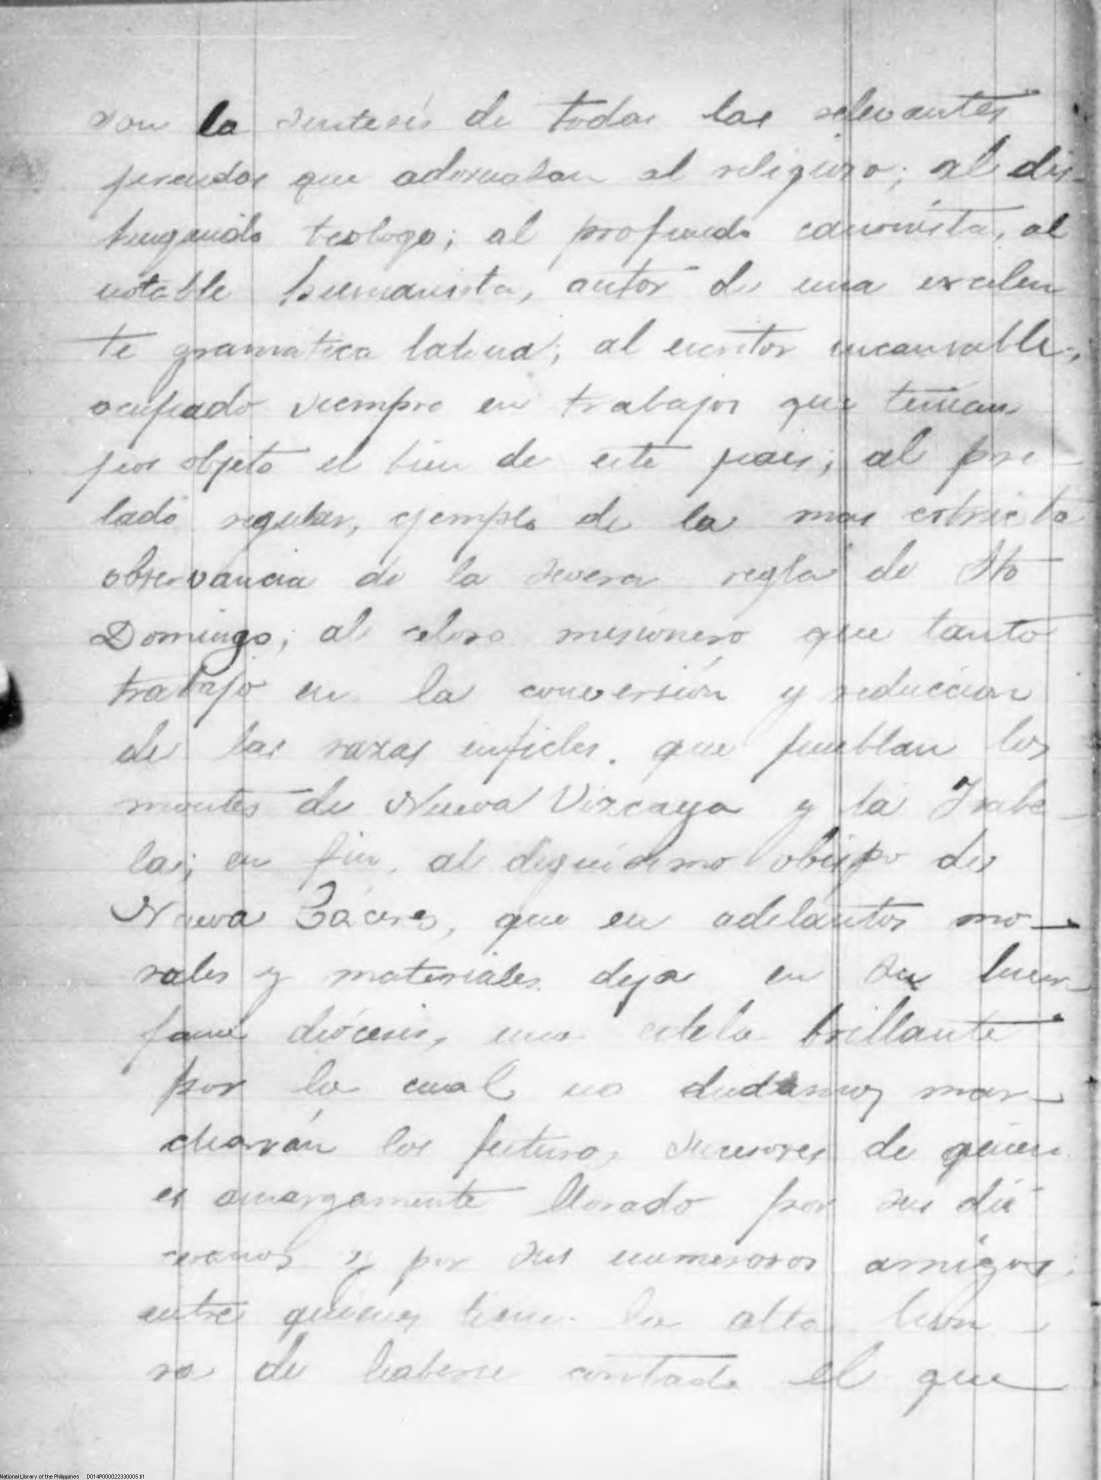 son la sintesis de todas las relevantes
prendas que adornaban al religioso; al dis-
tinguido teologo; al profundo canonista, al
notable humanista, autor de una excelen
te gramatica latina; al escritor incansable,
ocupado siempre en trabajos que tenian
por objeto el bien de este pais; al pre-
lado regular, ejemplo de la mas estricta
observancia de la severa regla de Sto
Domingo; al celoso misionero que tanto
trabajó en la conversión y reduccion
de las razas infieles. que pueblan los
montes de Nueva Vizcaya y la Isabe-
la; en fin. al dignisimo obispo de
Nueva Cáceres, que en adelantos mo-
rales y materiales deja en su huer-
fana diócesis, una estela brillante
por la cual no dudamos mar-
charán los futuros sucesores de quien
es amargamente llorado por sus dio
cesanos y por sus numerosos amigos;
entre quienes tiene la alta hon-
ra de haberse contado el que
National Library of the Philippines D014P000022330005.tif